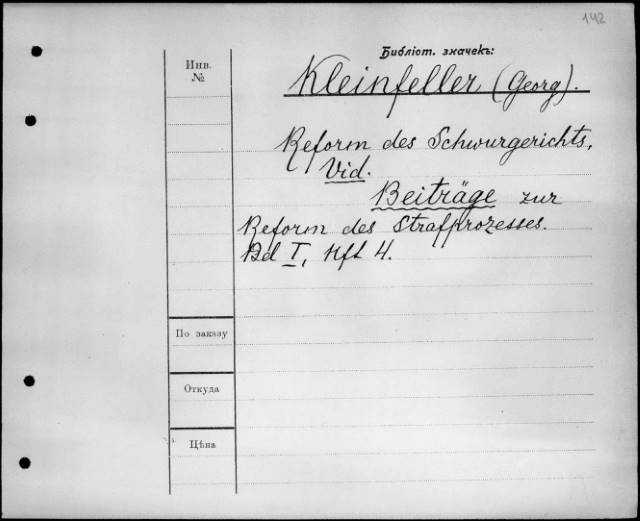 142
Библіот. значекъ:
Инв.
№
Kleinfeller, (Georg).
Reform des Schwurgerichts.
Vid.
Beiträge zur
Reform des Strafprozesses.
Bd I, Hft 4.
По заказу
Откуда
Цѣна